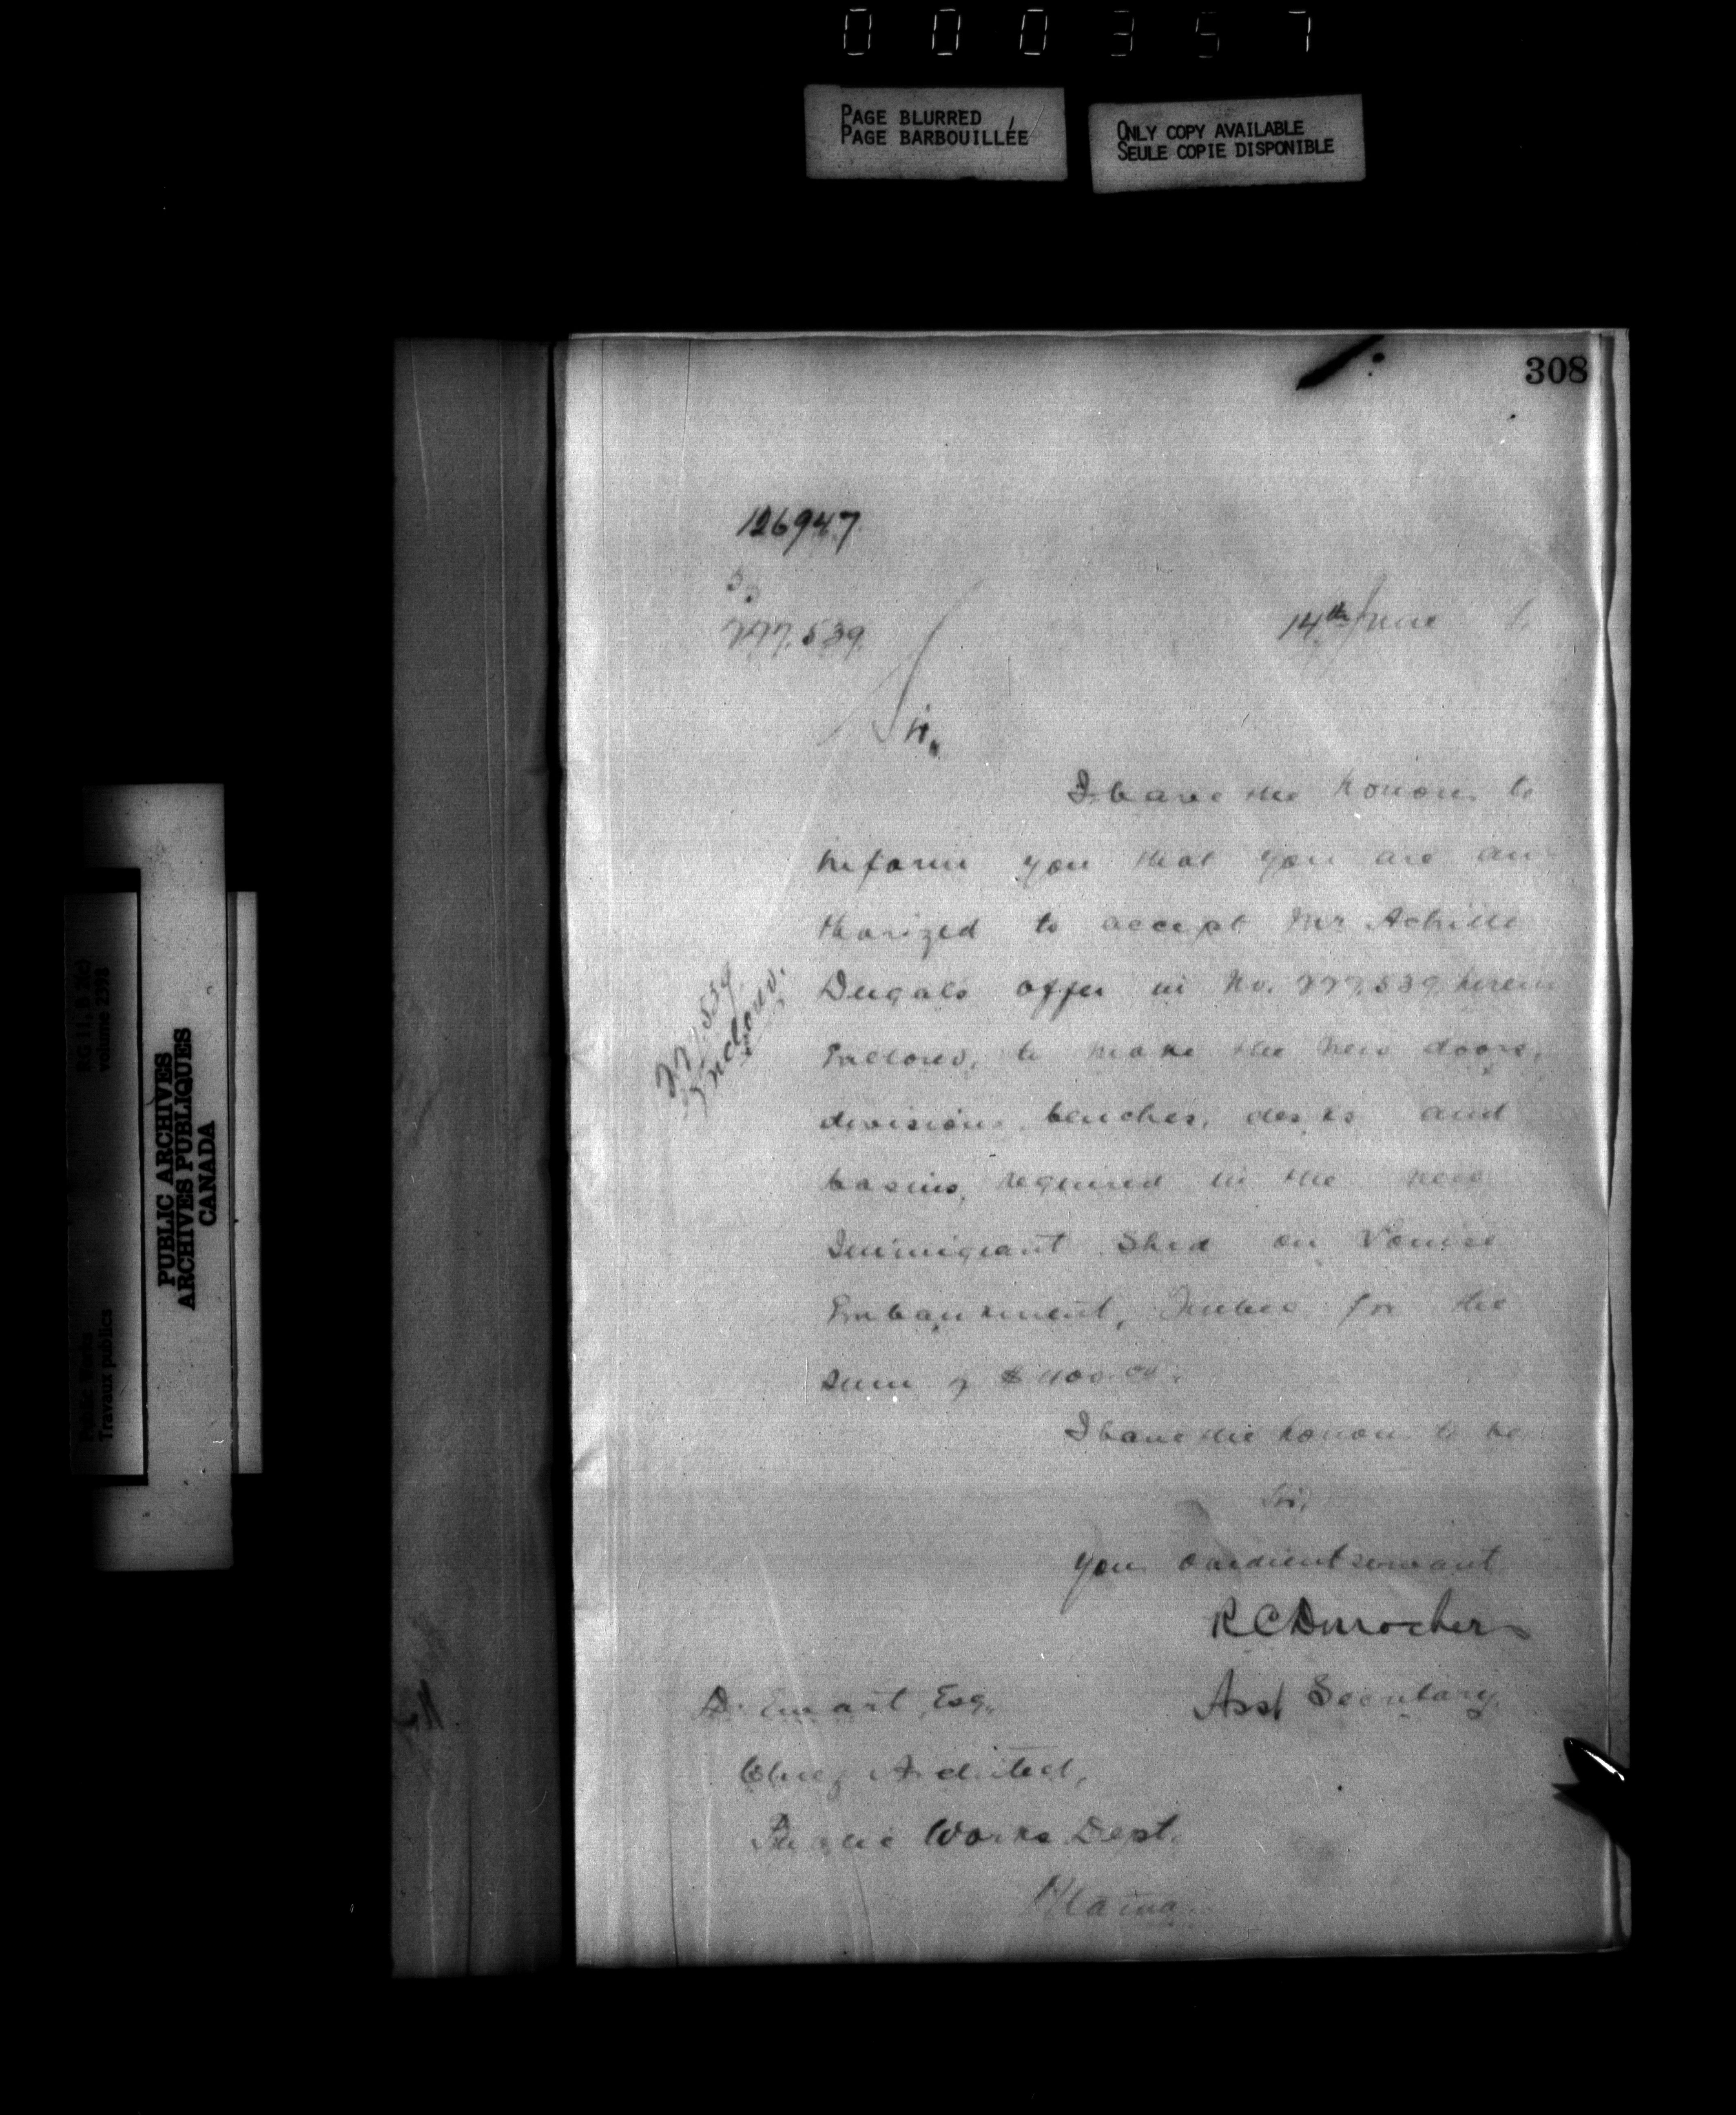 000357
PAGE BLURRED
PAGE BARBOUILLÉE
ONLY COPY AVAILABLE
SEULE COPIE DISPONIBLE
308
126947
227,539
14th June
Sir,
I have the honour to
inform you that you are au-
thorized to accept Mr Achille
Dugals offer in No. 227,539, herein
Enclosed, to make the new doors,
divisions, benches, desks and
basins, required in the new
Immigrant Shed on Louise
Embankment, Quebec for the
sum of $400.00.
I have the honour to be
Sir,
your obedient servant
R C Desrochers
Asst Secretary.
D. Ewart, Esq.,
Chief Architect,
Public Works Dept.
Ottawa
Enclosed.
RG 11, B 2(c)
volume 2398
PUBLIC ARCHIVES
ARCHIVES PUBLIQUES
CANADA
Public Works
Travaux publics